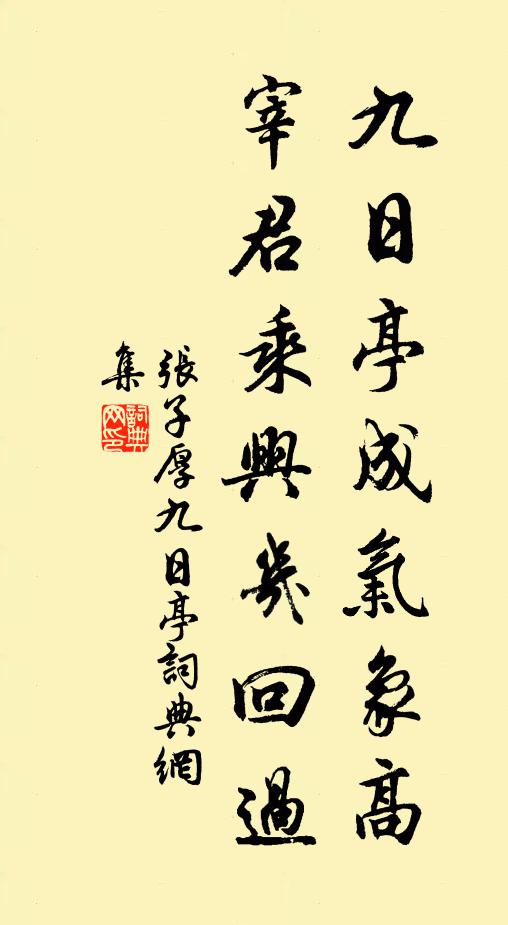 九日亭成氣象高
宰君乘興幾回過
張子厚九日亭詞典網
集
詞典網印